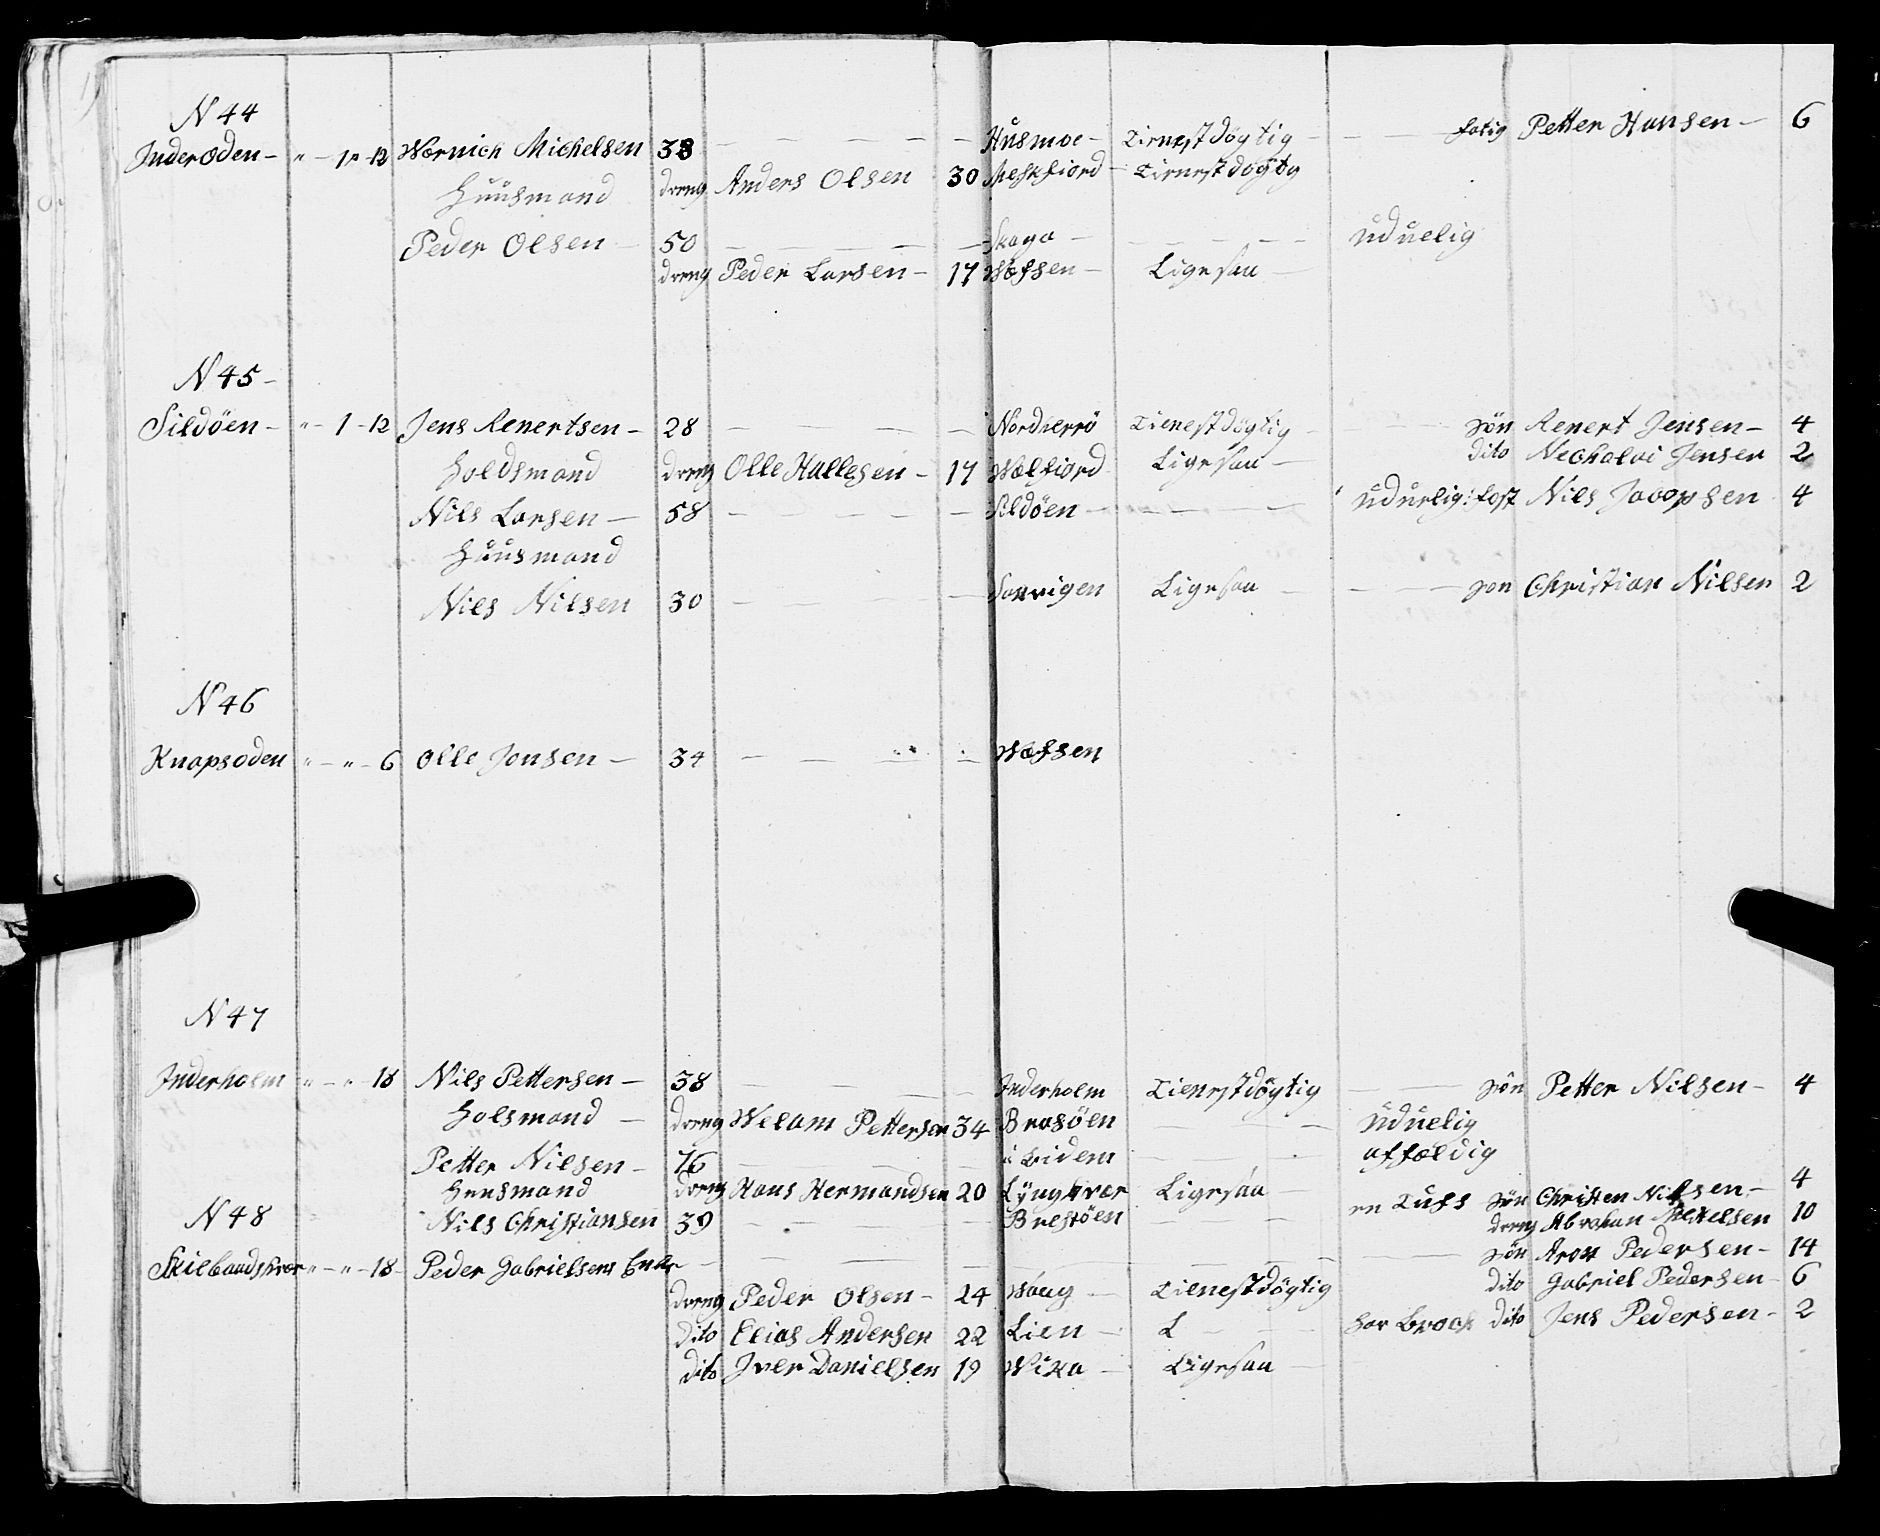 N 44
Inderøden - " - 1 - 12 Wernich Michelsen 38 - - - - Husmoe - Tienestdøgtig - - fatig Petter Hansen - 6
Huusmand dreng Anders Olsen 30 Mefkfiord - Tienestdøgtig
Peder Olsen - 50 - - - - Skaga - - - - - uduelig
dreng Peder Larsen - 17 Wefsen - Ligesaa -
N 45 -
Sildöen - " - 1 - 12 Jens Renertsen - 28 - - - - Nordherrö Tienestdøgtig - - søn Renert Jensen - 4
Holdsmand dreng Olle Hallesen - 17 Welfiord Ligesaa - dito Nicholai Jensen 2
Nils Larsen - 58 - - - - Sildöen - - - - uduelig: fost Nils Jacopsen 4
Huusmand
Nils Nilsen 30 - - - Sverrigen Ligesaa - - - søn Christian Nilsen 2
N 46
Knapsoden " - " - 6 Olle Jonsen - 34 - - - - Wefsen
N 47
Inderholm " - " - 18 Nils Pettersen - 38 - - - Inderholm Tienestdøgtig - - søn Petter Nilsen - 4
Holsmand - dreng Welam Pettersen 34 Brasöen - - - uduelig
Petter Nilsen - 76 - - - i bidem - - - affældig
Huusmand dreng Hans Hermandsen 20 Lyngvær Ligesaa - en Tufs søn Christen Nilsen - 4
N 48 Nils Christiansen 39 - - - Brestöen - - - dreng Abraham Mikelsen 10
Skielbaadsvær " - " - 18 - Peder Gabrielsens Enke - - - - - søn Aron Pedersen - 14
dreng Peder Olsen - 24 Waag - Tienestdøgtig dito Gabriel Pedersen - 6
dito Elias Andersen 22 Lien - L - - har brock dito Jens Pedersen - 2
dito Iver Danielsen 19 Wika - Ligesaa -